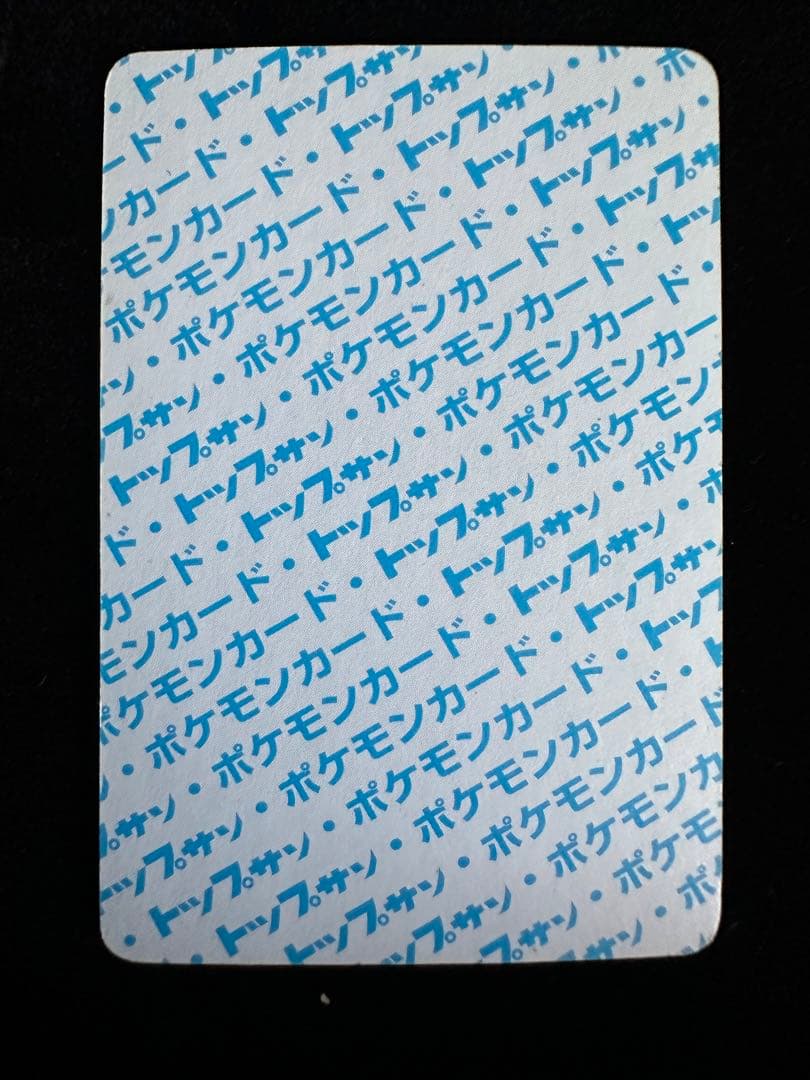 ・トップ
ード・トップサ
ンカード・トップサン・
モンカード・トップサン・ポ
ポケモンカード・トップサン・
・ポケモンカード・トップサン
ン・ポケモンカード・トップサ
サン・ポケモンカード・トッ
プサン・ポケモンカード・
トップサン・ポケモンカー
・トップサン・ポケモン
ド・トップサン・ポケモ
カード・トップサン・ポケ
モンカード・トップサン・ポ
ポケモンカード・トップサン
・ポケモンカード・トップ
・ポケモンカード・ト
サン・ポケモンカード
プサン・ポケモンカ
トップサン・ポケモ
・トップサン・ポケ
トップサン・ポ
トップサン